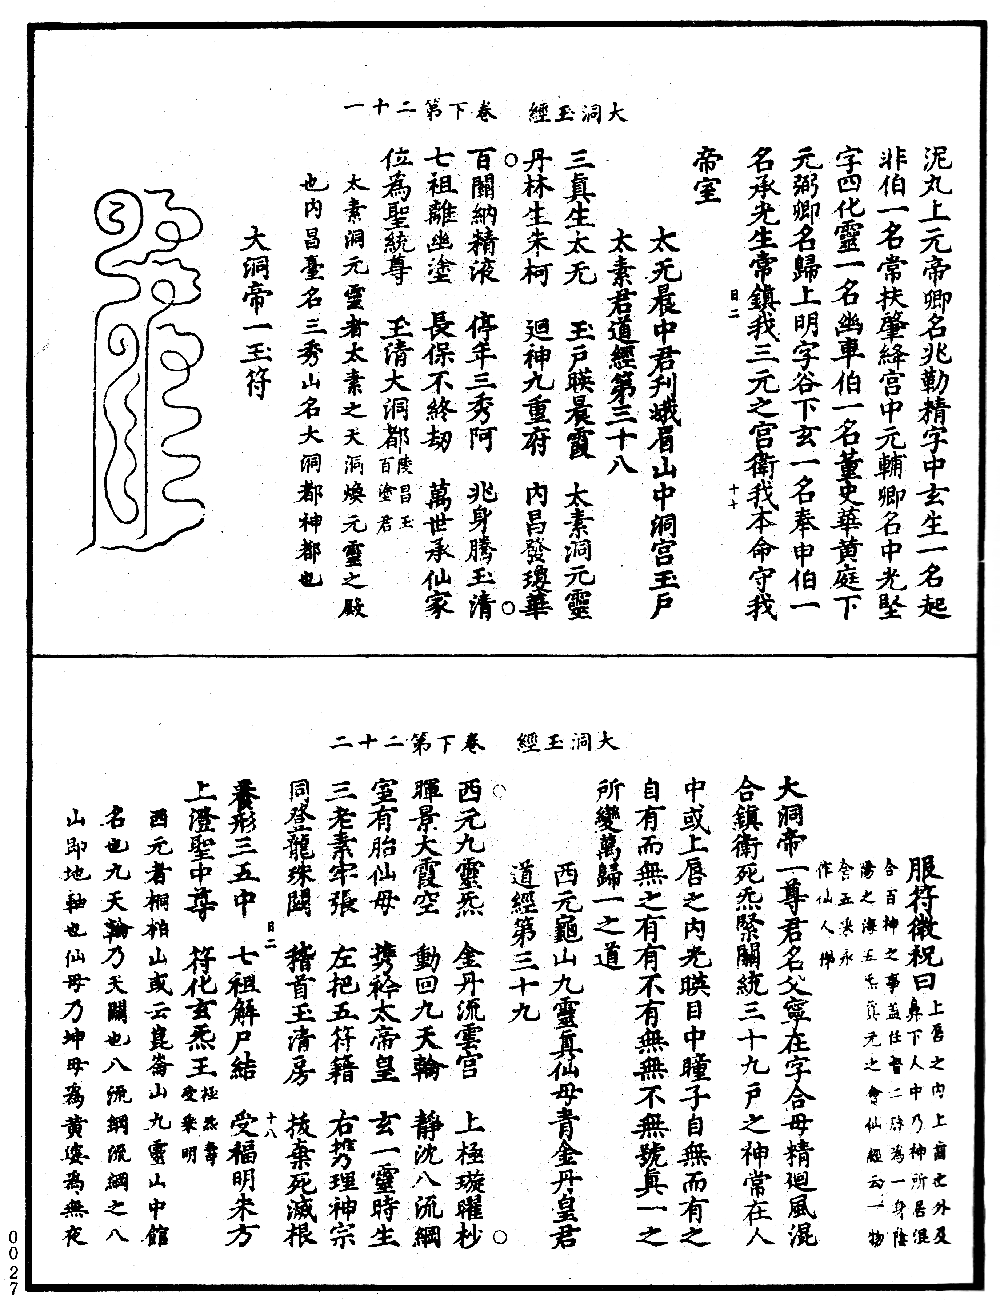 大洞玉經　卷下第二十一
泥丸上元帝卿名兆勤精字中玄生一名起
非伯一名常扶肇絳宮中元輔卿名中光堅
字四化靈一名幽車伯一名董史華黄庭下
元弼卿名歸上明字谷下玄一名奉申伯一
名承光生常鎮我三元之宮衛我本命守我
日二
十七
帝室
太无晨中君刋峨眉山中洞宮玉戶
太素君道經第三十八
三真生太无　玉戸暎晨霞　太素洞元靈
○丹林生朱柯　迴神九重府　內昌發瓊華○
百關納精液　停年三秀阿　兆身騰玉清
七祖離幽塗　長保不終劫　萬世承仙家
位為聖統尊　玉清大洞都陵昌玉百塗君
太素洞元靈者太素之天洞煥元靈之殿
也內昌臺名三秀山名大洞都神都也
大洞帝一玉符
大洞玉經　卷下第二十二
服符微祝曰上唇之內上齒之外及
鼻下人中乃神所居混
合百神之事蓋任督二脉為一身陰
陽之海五炁真元之會仙經云一物
含五彩永
作仙人糧
大洞帝一尊君名父寧在字合母精迴風混
合鎮衛死炁緊關統三十九戸之神常在人
中或上唇之內光暎目中瞳子自無而有之
自有而無之有有不有無無不無號真一之
所變萬歸一之道
西元龜山九靈真仙母青金丹皇君
道經第三十九
○西元九靈炁　金丹流雲宮　上極璇曜杪○
暉景大霞空　動回九天輪　靜沈八流綱
室有胎仙母　携衿太帝皇　玄一靈時生
三老素牢張　左把五符籍　右携理神宗
同登龍珠闕　稽首玉清房　拔棄死滅根
日二
十八
養形三五中　七祖解尸結　受福明朱方
上澄聖中尊　符化玄炁王極炁壽受乘明
西元者桐柏山或云崑崙山九靈山中館
名也九天輪乃天關也八流綱流綱之八
山即地軸也仙母乃坤母為黄婆為無夜
0027